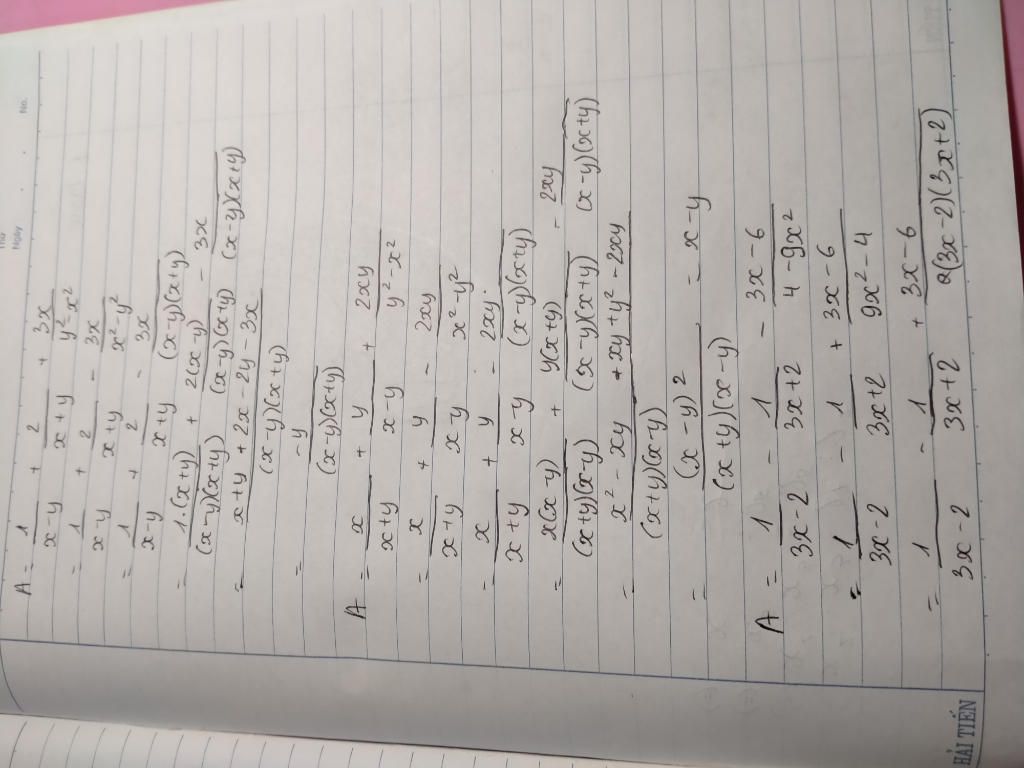 Thứ
Ngày
No.
A = 1/(x-y) + 2/(x+y) + 3x/(y²-x²)
= 1/(x-y) + 2/(x+y) - 3x/(x²-y²)
= 1/(x-y) + 2/(x+y) - 3x/((x-y)(x+y))
= 1.(x+y)/((x-y)(x+y)) + 2(x-y)/((x-y)(x+y)) - 3x/((x-y)(x+y))
= (x+y+2x-2y-3x)/((x-y)(x+y))
= -y/((x-y)(x+y))
A = x/(x+y) + y/(x-y) + 2xy/(y²-x²)
= x/(x+y) + y/(x-y) - 2xy/(x²-y²)
= x/(x+y) + y/(x-y) - 2xy/((x-y)(x+y))
= x(x-y)/((x+y)(x-y)) + y(x+y)/((x-y)(x+y)) - 2xy/((x-y)(x+y))
= (x²-xy+xy+y²-2xy)/((x+y)(x-y))
= (x-y)²/((x+y)(x-y)) = x-y
A = 1/(3x-2) - 1/(3x+2) - (3x-6)/(4-9x²)
= 1/(3x-2) - 1/(3x+2) + (3x-6)/(9x²-4)
= 1/(3x-2) - 1/(3x+2) + (3x-6)/((3x-2)(3x+2))
HẢI TIẾN